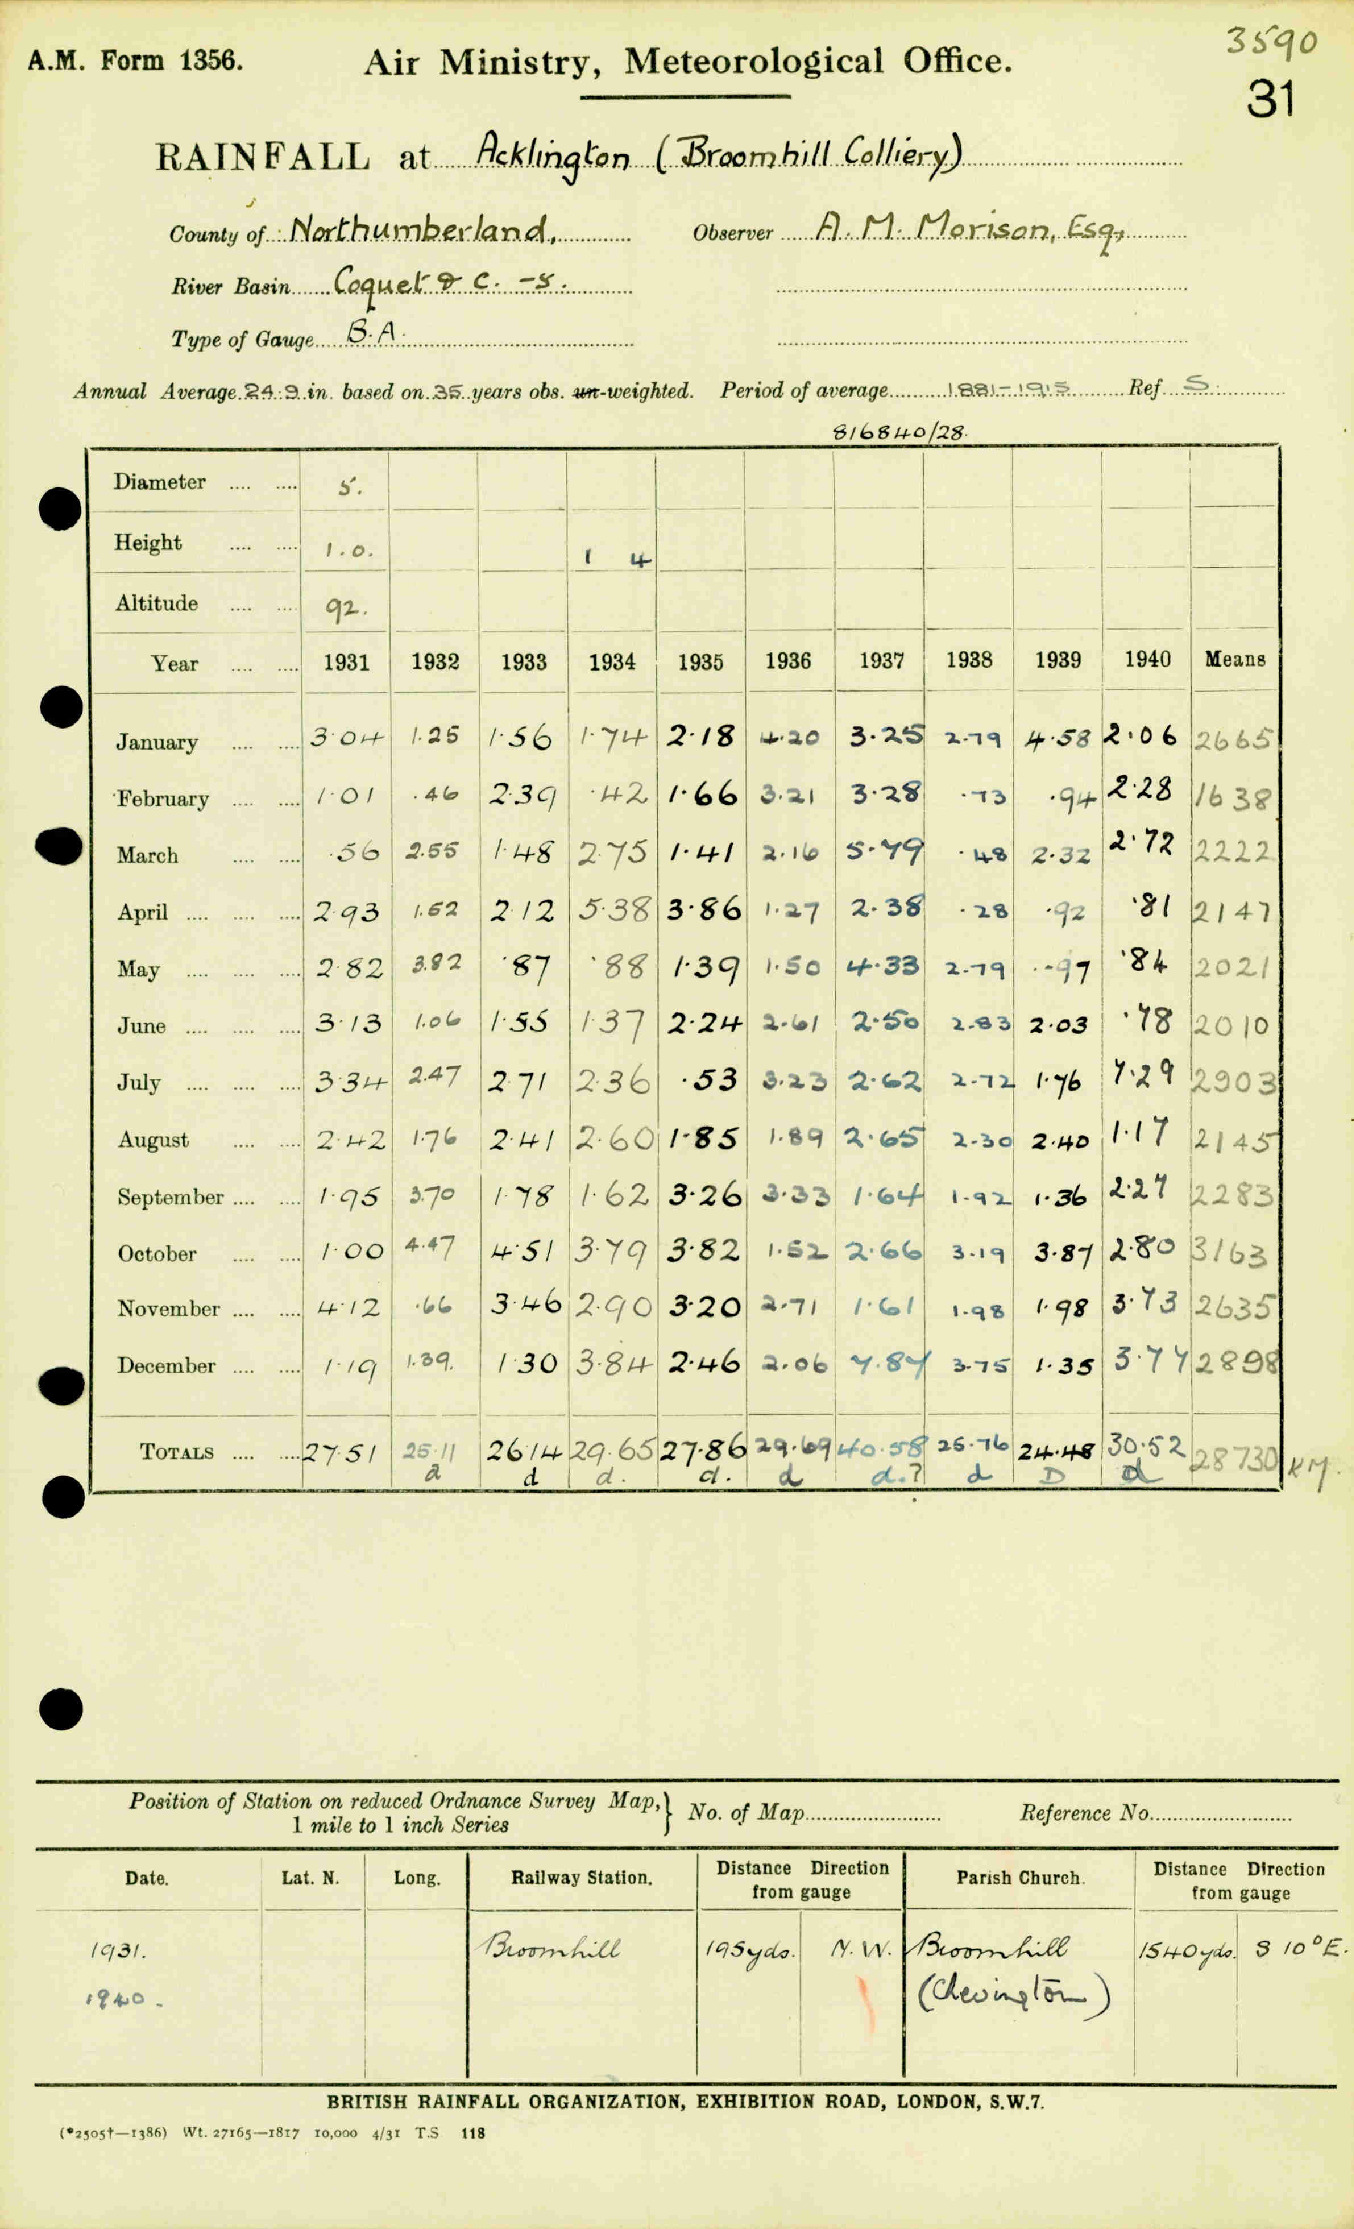 3590
A.M. Form 1356. Air Ministry, Meteorological Office.
31
RAINFALL at Acklington (Broomhill Colliery)
County of Northumberland, Observer A. M. Morison, Esq,
River Basin Coquet & C. -5.
Type of Gauge B.A.
Annual Average 24.9 in. based on 35 years obs. un-weighted. Period of average 1881-1915 Ref S.
816840/28.
Diameter 5.
Height 1.0. 1 4
Altitude 92.
Year 1931 1932 1933 1934 1935 1936 1937 1938 1939 1940 Means
January 3.04 1.25 1.56 1.74 2.18 4.20 3.25 2.79 4.58 2.06 2665
February 1.01 .46 2.39 .42 1.66 3.21 3.28 .73 .94 2.28 1638
March .56 2.55 1.48 2.75 1.41 2.16 5.79 .48 2.32 2.72 2222
April 2.93 1.52 2.12 5.38 3.86 1.27 2.38 .28 .92 .81 2147
May 2.82 3.82 .87 .88 1.39 1.50 4.33 2.79 .97 .84 2021
June 3.13 1.06 1.55 1.37 2.24 2.61 2.50 2.83 2.03 .78 2010
July 3.34 2.47 2.71 2.36 .53 3.23 2.62 2.72 1.76 7.29 2903
August 2.42 1.76 2.41 2.60 1.85 1.89 2.65 2.30 2.40 1.17 2145
September 1.95 3.70 1.78 1.62 3.26 3.33 1.64 1.92 1.36 2.27 2283
October 1.00 4.47 4.51 3.79 3.82 1.52 2.66 3.19 3.87 2.80 3163
November 4.12 .66 3.46 2.90 3.20 2.71 1.61 1.98 1.98 3.73 2635
December 1.19 1.39. 1.30 3.84 2.46 2.06 7.87 3.75 1.35 3.77 2898
TOTALS 27.51 25.11 26.14 29.65 27.86 29.69 40.58 25.76 24.48 30.52 28730 KM.
d d d. d. d d.? d D d
Position of Station on reduced Ordnance Survey Map,} No. of Map Reference No.
1 mile to 1 inch Series
Date. Lat. N. Long. Railway Station. Distance Direction from gauge Parish Church. Distance Direction from gauge
1931. Broomhill 195yds. N.W. Broomhill 1540yds. S 10°E.
1940. (Chevington)
BRITISH RAINFALL ORGANIZATION, EXHIBITION ROAD, LONDON, S.W.7.
(*2505†—1386) Wt. 27165—1817 10,000 4/31 T.S 118